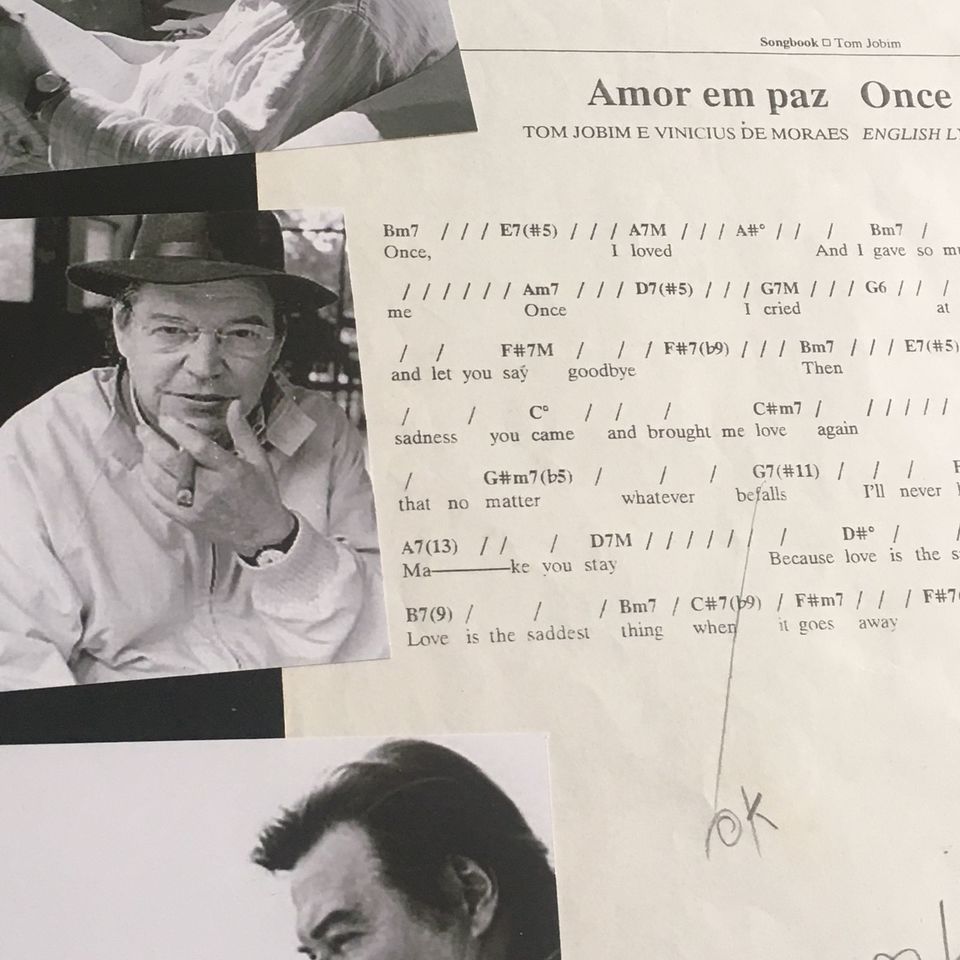 Songbook □ Tom Jobim
Amor em paz Once
TOM JOBIM E VINICIUS DE MORAES ENGLISH
Bm7 / / / E7(#5) / / / A7M / / / A#° / / / Bm7 /
Once, I loved And I gave so
/ / / / / / Am7 / / / D7(#5) / / / G7M / / / G6 / / /
me Once I cried at
/ / F#7M / / / F#7(b9) / / / Bm7 / / / E7(#5)
and let you say goodbye Then
/ / C° / / / C#m7 / / / / / /
sadness you came and brought me love again
/ G#m7(b5) / / / G7(#11) / / /
that no matter whatever befalls I'll never
A7(13) / / / D7M / / / / / / / D#° / /
Ma————ke you stay Because love is the
B7(9) / / / Bm7 / C#7(b9) / F#m7 / / / F#7
Love is the saddest thing when it goes away
OK